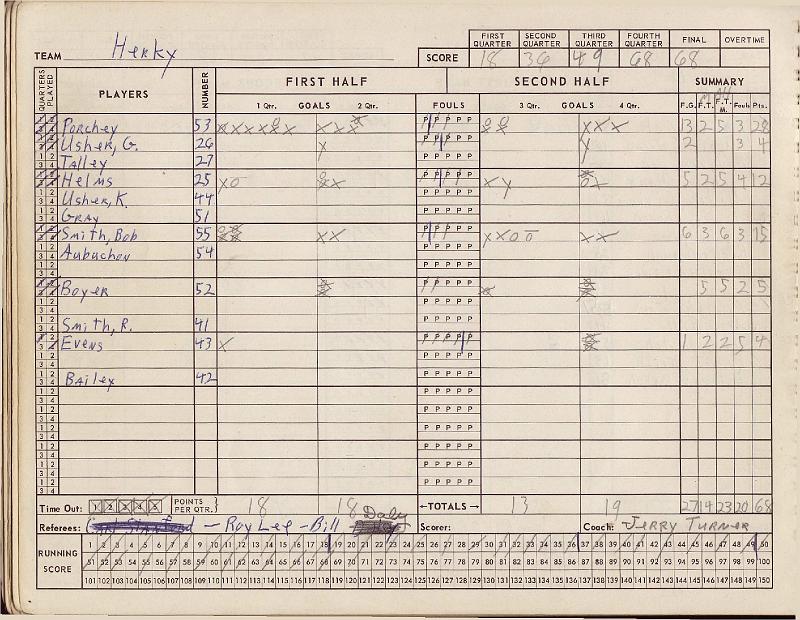 TEAM Herky
SCORE
FIRST QUARTER SECOND QUARTER THIRD QUARTER FOURTH QUARTER FINAL OVERTIME
18 36 49 68 68
QUARTERS PLAYED PLAYERS NUMBER FIRST HALF SECOND HALF SUMMARY
1 Qtr. GOALS 2 Qtr. FOULS 3 Qtr. GOALS 4 Qtr. F.G. F.T. F.T. M. Fouls Pts.
Porchey 53 P P P P P 13 2 5 3 28
Usher, G. 26 P P P P P 2 3 4
Talley 27 P P P P P
Helms 25 P P P P P 5 2 5 4 12
Usher, K. 44 P P P P P
Gray 51 P P P P P
Smith, Bob 55 P P P P P 6 3 6 3 15
Aubuchon 54 P P P P P
Boyer 52 P P P P P 5 5 2 5
Smith, R. 41 P P P P P
Evens 43 P P P P P 1 2 2 5 4
Bailey 42 P P P P P
Time Out: 1 2 3 4 5 POINTS PER QTR. 18 18 ←TOTALS→ 13 19 27 14 23 20 68
Referees: — Roy Lee - Bill Daly Scorer: Coach: Jerry Turner
RUNNING SCORE
1 2 3 4 5 6 7 8 9 10 11 12 13 14 15 16 17 18 19 20 21 22 23 24 25 26 27 28 29 30 31 32 33 34 35 36 37 38 39 40 41 42 43 44 45 46 47 48 49 50
51 52 53 54 55 56 57 58 59 60 61 62 63 64 65 66 67 68 69 70 71 72 73 74 75 76 77 78 79 80 81 82 83 84 85 86 87 88 89 90 91 92 93 94 95 96 97 98 99 100
101 102 103 104 105 106 107 108 109 110 111 112 113 114 115 116 117 118 119 120 121 122 123 124 125 126 127 128 129 130 131 132 133 134 135 136 137 138 139 140 141 142 143 144 145 146 147 148 149 150